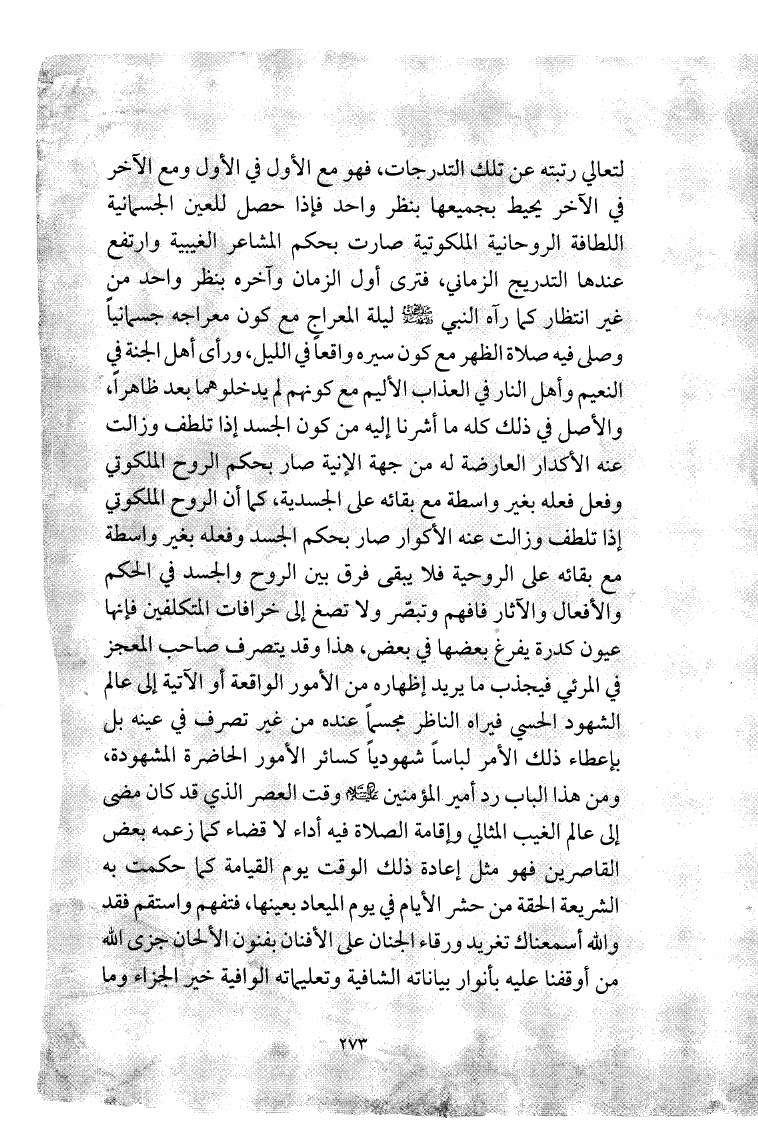 لتعالي رتبته عن تلك التدرجات، فهو مع الأول في الأول ومع الآخر
في الآخر يحيط بجميعها بنظر واحد فإذا حصل للعين الجسمانية
اللطافة الروحانية الملكوتية صارت بحكم المشاعر الغيبية وارتفع
عندها التدريج الزماني، فترى أول الزمان وآخره بنظر واحد من
غير انتظار كما رآه النبي ﷺ ليلة المعراج مع كون معراجه جسمانياً
وصلى فيه صلاة الظهر مع كون سيره واقعاً في الليل، ورأى أهل الجنة في
النعيم وأهل النار في العذاب الأليم مع كونهم لم يدخلوهما بعد ظاهراً،
والأصل في ذلك كله ما أشرنا إليه من كون الجسد إذا تلطف وزالت
عنه الأكدار العارضة له من جهة الإنية صار بحكم الروح الملكوتي
وفعل فعله بغير واسطة مع بقائه على الجسدية، كما أن الروح الملكوتي
إذا تلطف وزالت عنه الأكوار صار بحكم الجسد وفعله بغير واسطة
مع بقائه على الروحية فلا يبقى فرق بين الروح والجسد في الحكم
والأفعال والآثار فافهم وتبصّر ولا تصغ إلى خرافات المتكلفين فإنها
عيون كدرة يفرغ بعضها في بعض، هذا وقد يتصرف صاحب المعجز
في المرئي فيجذب ما يريد إظهاره من الأمور الواقعة أو الآتية إلى عالم
الشهود الحسي فيراه الناظر مجسماً عنده من غير تصرف في عينه بل
بإعطاء ذلك الأمر لباساً شهودياً كسائر الأمور الحاضرة المشهودة،
ومن هذا الباب رد أمير المؤمنين عليه السلام وقت العصر الذي قد كان مضى
إلى عالم الغيب المثالي وإقامة الصلاة فيه أداء لا قضاء كما زعمه بعض
القاصرين فهو مثل إعادة ذلك الوقت يوم القيامة كما حكمت به
الشريعة الحقة من حشر الأيام في يوم الميعاد بعينها، فتفهم واستقم فقد
والله أسمعناك تغريد ورقاء الجنان على الأفنان بفنون الألحان جزى الله
من أوقفنا عليه بأنوار بياناته الشافية وتعليماته الوافية خير الجزاء وما
٢٧٣